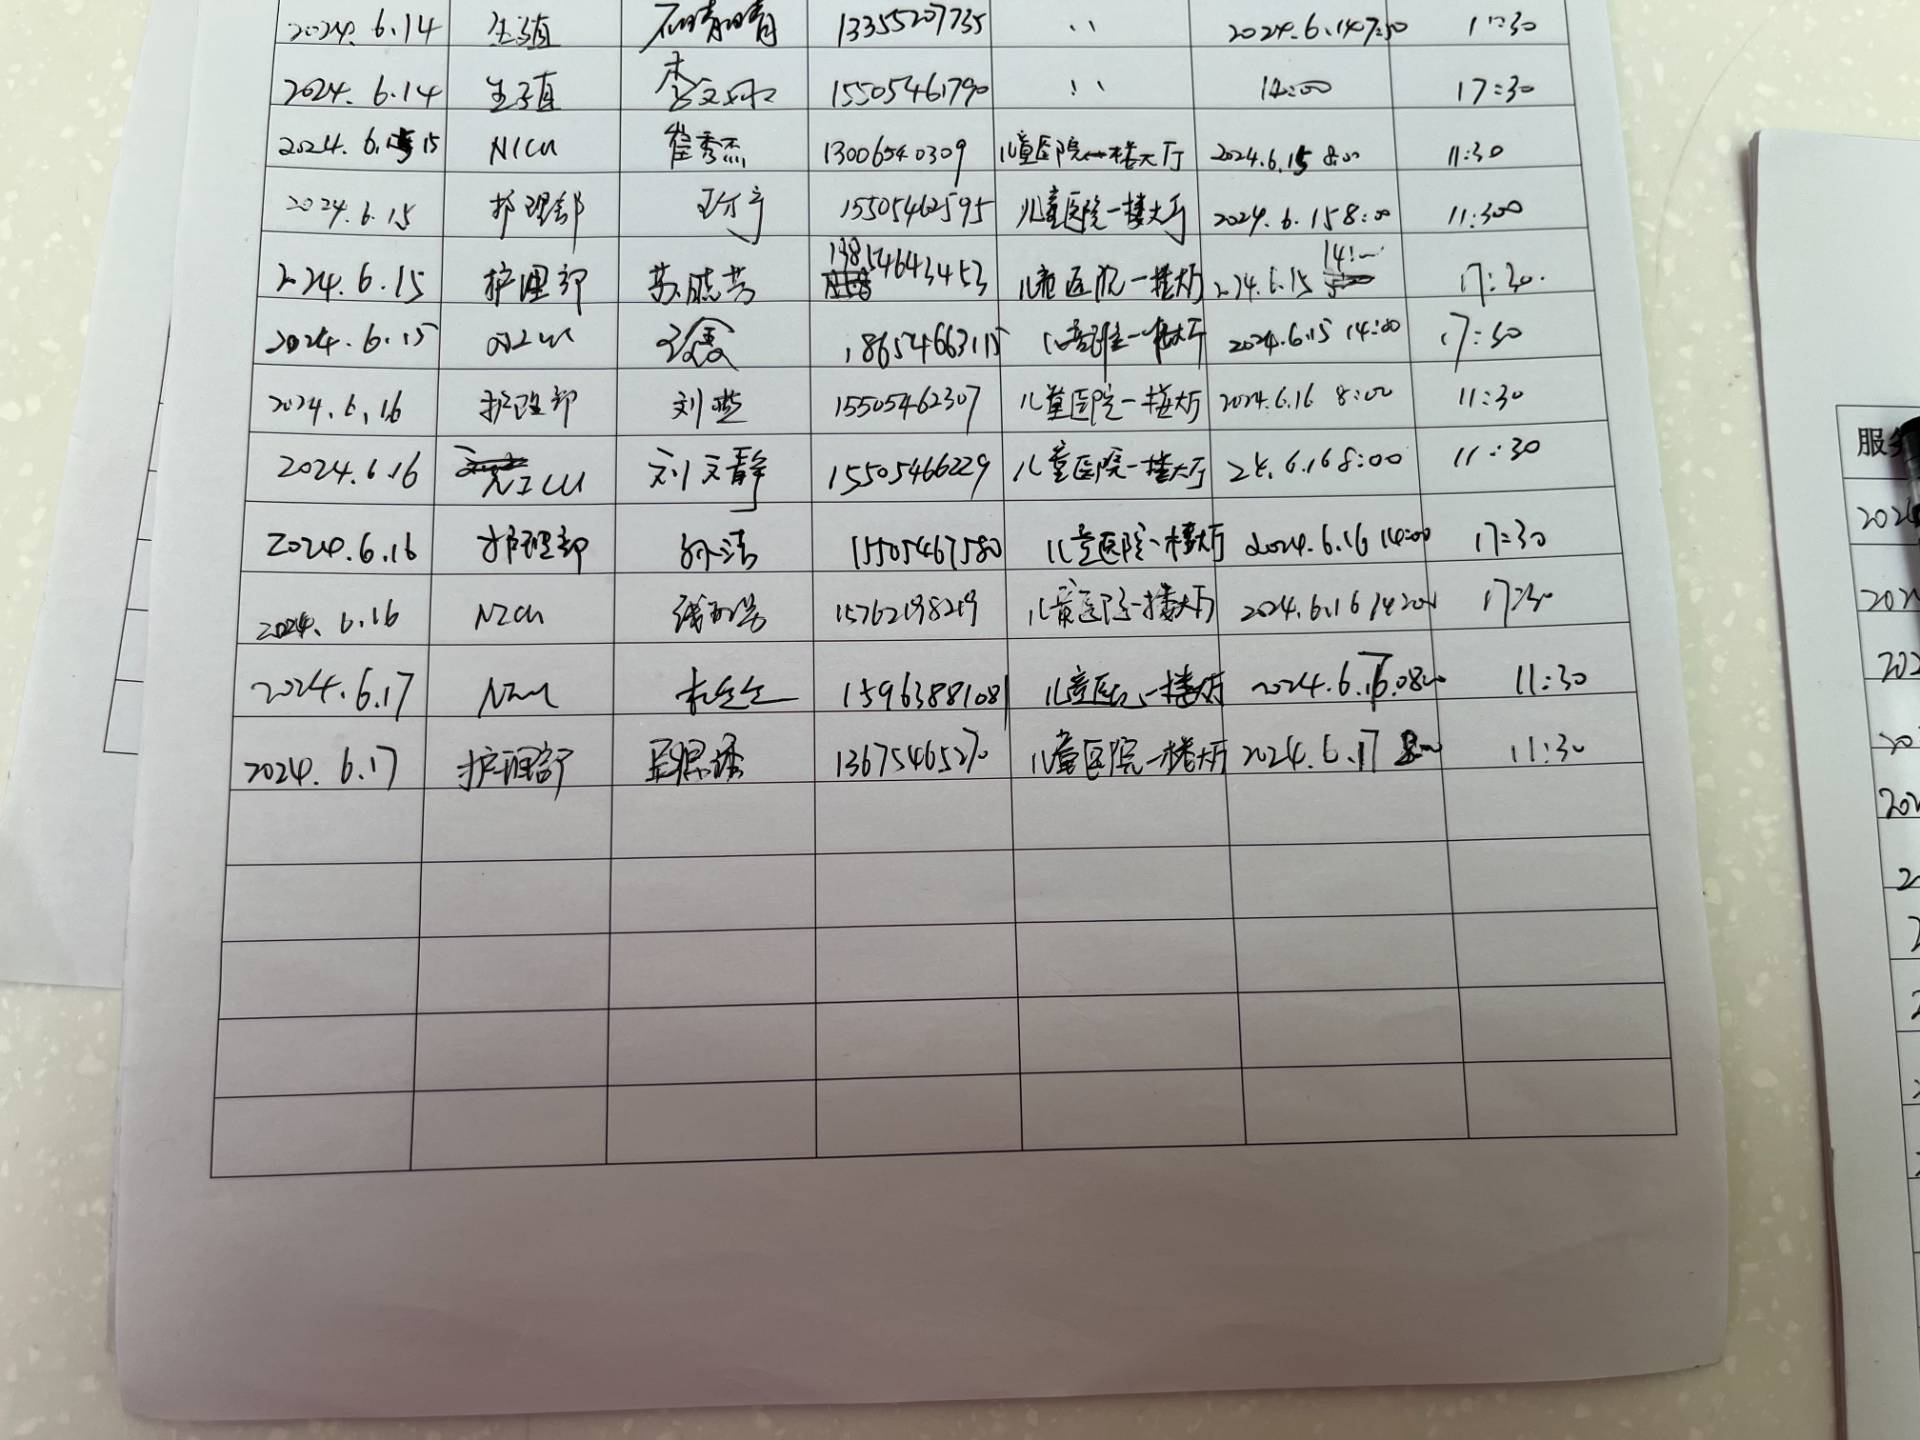 2024. 6.14 生殖 石晴晴 13355207735 、、 2024.6.14 7:30 11:30
2024. 6.14 生殖 15505461790 、、 14:00 17:30
2024. 6. 15 NICU 崔秀杰 13006540309 儿童医院一楼大厅 2024.6.15 8:00 11:30
2024.6.15 护理部 15505462595 儿童医院一楼大厅 2024.6.15 8:00 11:300
2024.6.15 护理部 苏晓芳 13854643453 儿童医院一楼大厅 2024.6.15 14:00 17:30.
2024.6.15 18654663115 一楼大厅 2024.6.15 14:00 17:30
2024.6.16 护理部 刘 15505462307 儿童医院一楼大厅 2024.6.16 8:00 11:30
2024.6.16 ICU 刘文静 15505466229 儿童医院一楼大厅 24.6.16 8:00 11:30
2024.6.16 护理部 孙洁 15505467580 儿童医院一楼大厅 2024.6.16 14:00 17:30
2024. 6.16 NICU 15762198219 儿童医院一楼大厅 2024.6.16 17:30
2024.6.17 NICU 15963881081 儿童医院一楼大厅 11:30
2024. 6.17 护理部 13675465270 儿童医院一楼大厅 2024.6.17 8:00 11:30
服务